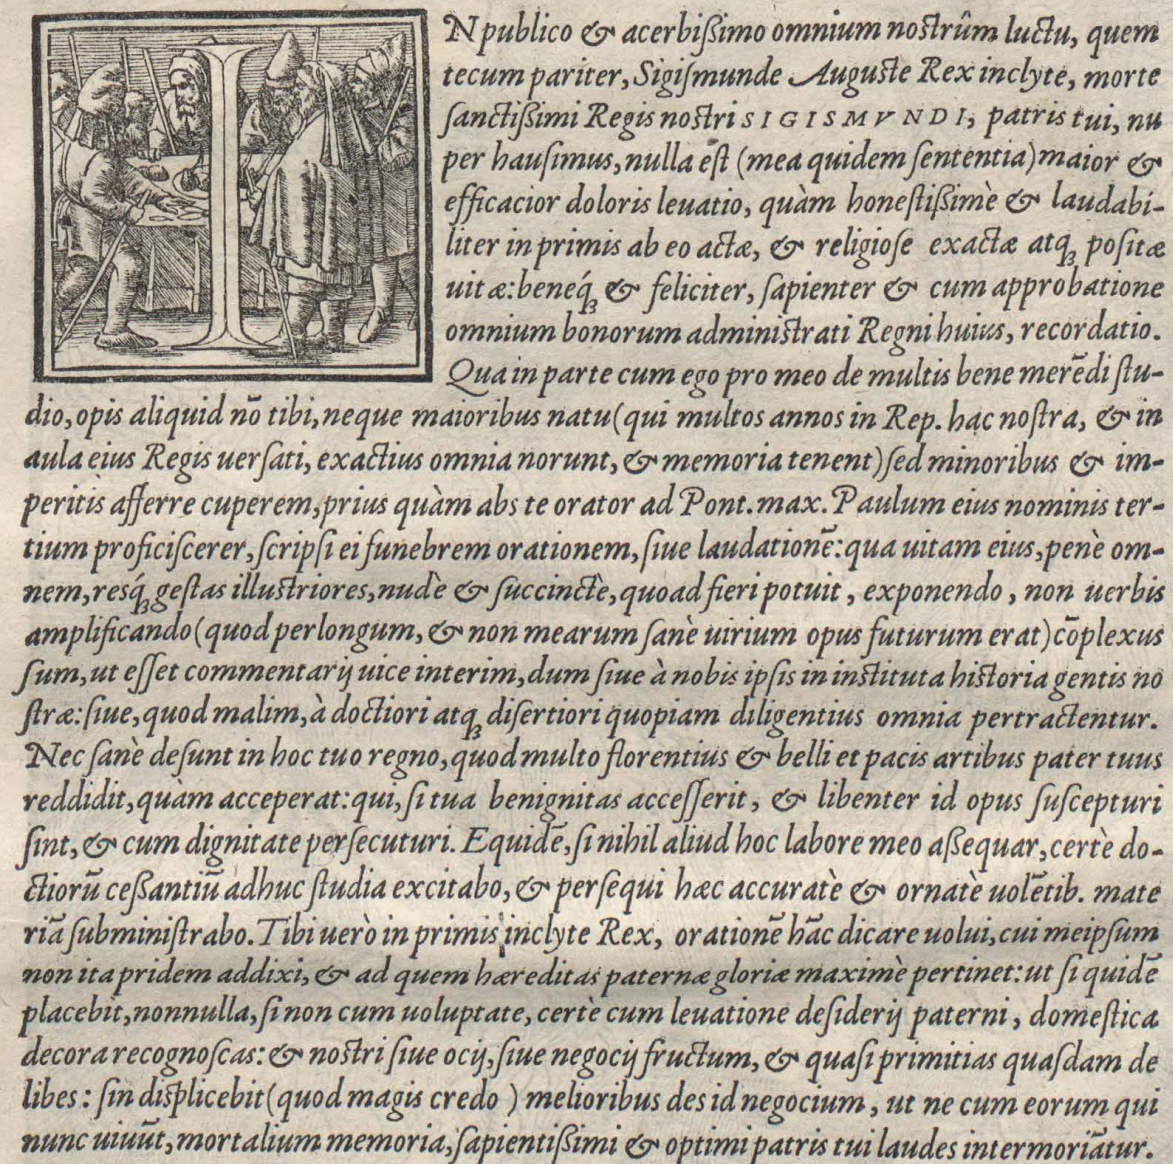 IN publico & acerbißimo omnium nostrûm luctu, quem
tecum pariter, Sigiſmunde Auguste Rex inclyte, morte
ſanctißimi Regis nostri SIGISMVNDI, patris tui, nu
per hauſimus, nulla eſt (mea quidem ſententia) maior &
efficacior doloris leuatio, quàm honeſtißimè & laudabi-
liter in primis ab eo actæ, & religioſe exactæ atq; poſitæ
uitæ: beneq́; & feliciter, ſapienter & cum approbatione
omnium bonorum administrati Regni huius, recordatio.
Qua in parte cum ego pro meo de multis bene merēdi ſtu-
dio, opis aliquid nō tibi, neque maioribus natu (qui multos annos in Rep. hac noſtra, & in
aula eius Regis uerſati, exactius omnia norunt, & memoria tenent) ſed minoribus & im-
peritis afferre cuperem, prius quàm abs te orator ad Pont. max. Paulum eius nominis ter-
tium proficiſcerer, ſcripſi ei funebrem orationem, ſiue laudationē: qua uitam eius, penè om-
nem, resq́; geſtas illustriores, nudè & ſuccinctè, quoad fieri potuit, exponendo, non uerbis
amplificando (quod perlongum, & non mearum ſanè uirium opus futurum erat) cōplexus
ſum, ut eſſet commentarij uice interim, dum ſiue à nobis ipſis in instituta historia gentis no
ſtræ: ſiue, quod malim, à doctiori atq; diſertiori quopiam diligentius omnia pertractentur.
Nec ſanè deſunt in hoc tuo regno, quod multo florentius & belli et pacis artibus pater tuus
reddidit, quàm acceperat: qui, ſi tua benignitas acceſſerit, & libenter id opus ſuſcepturi
ſint, & cum dignitate perſecuturi. Equidē, ſi nihil aliud hoc labore meo aßequar, certè do-
ctiorū ceßantiū adhuc ſtudia excitabo, & perſequi hæc accuratè & ornatè uolētib. mate
riā ſubminiſtrabo. Tibi uerò in primis inclyte Rex, orationē hāc dicare uolui, cui meipſum
non ita pridem addixi, & ad quem hæreditas paternæ gloriæ maximè pertinet: ut ſi quidē
placebit, nonnulla, ſi non cum uoluptate, certè cum leuatione deſiderij paterni, domeſtica
decora recognoſcas: & nostri ſiue ocij, ſiue negocij fructum, & quaſi primitias quaſdam de
libes: ſin displicebit (quod magis credo ) melioribus des id negocium, ut ne cum eorum qui
nunc uiuūt, mortalium memoria, ſapientißimi & optimi patris tui laudes intermoriātur.